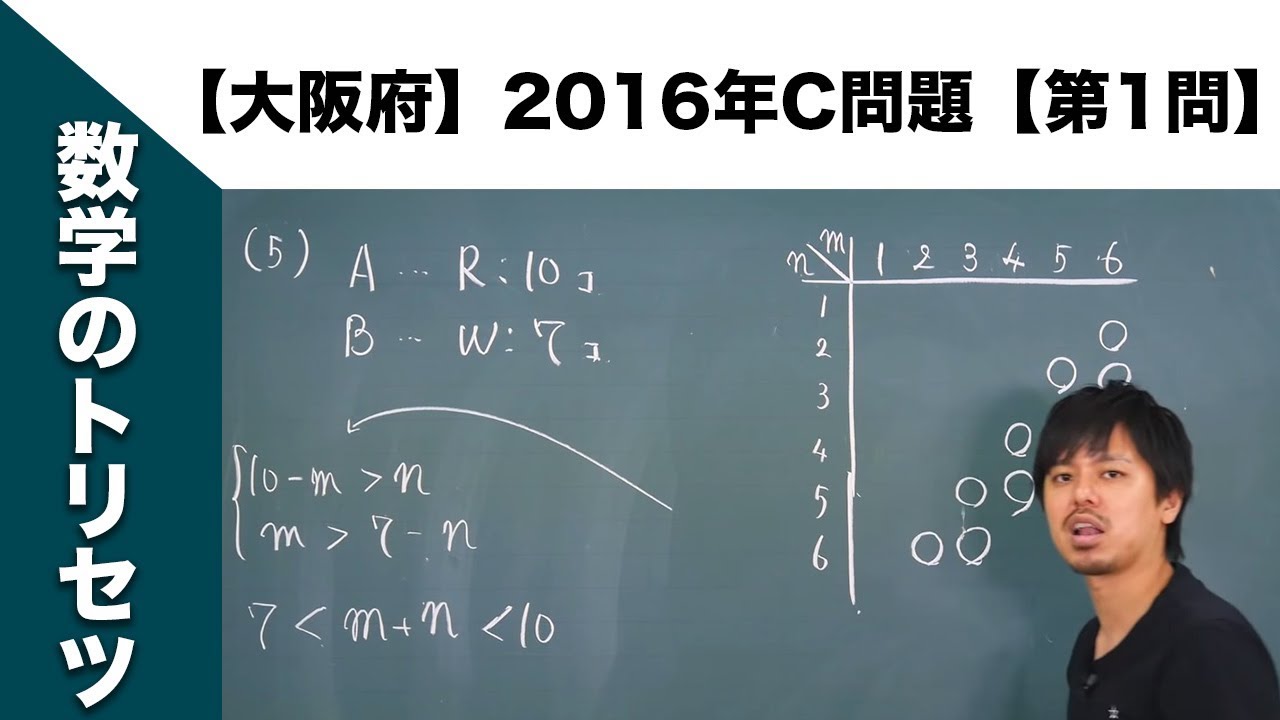 【大阪府】2016年C問題【第1問】
数学のトリセツ
(5) A … R:10コ
B … W:7コ
10-m>n
m>7-n
7<m+n<10
n m 1 2 3 4 5 6
1
2 ○
3 ○ ○
4 ○
5 ○ ○
6 ○ ○